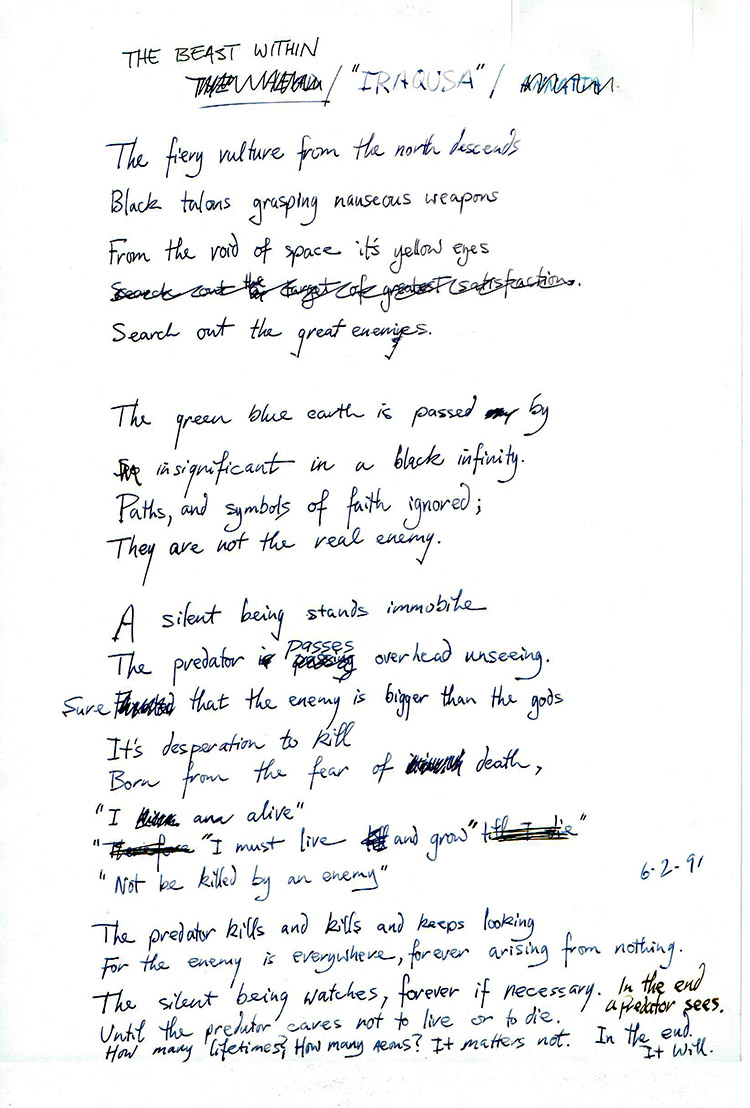 THE BEAST WITHIN
/ "IRAQUSA" /
The fiery vulture from the north descends
Black talons grasping nauseous weapons
From the void of space it's yellow eyes
Search out the target of greatest satisfaction.
Search out the great enemies.
The green blue earth is passed by
insignificant in a black infinity.
Paths, and symbols of faith ignored;
They are not the real enemy.
A silent being stands immobile
The predator is passing passes overhead unseeing.
Sure that the enemy is bigger than the gods
It's desperation to kill
Born from the fear of death,
"I am alive"
"Therefore "I must live and grow" till I die"
"Not be killed by an enemy"
6-2-91
The predator kills and kills and keeps looking
For the enemy is everywhere, forever arising from nothing.
The silent being watches, forever if necessary. In the end
a predator sees.
Until the predator cares not to live or to die.
How many lifetimes? How many aeons? It matters not. In the end.
It will.